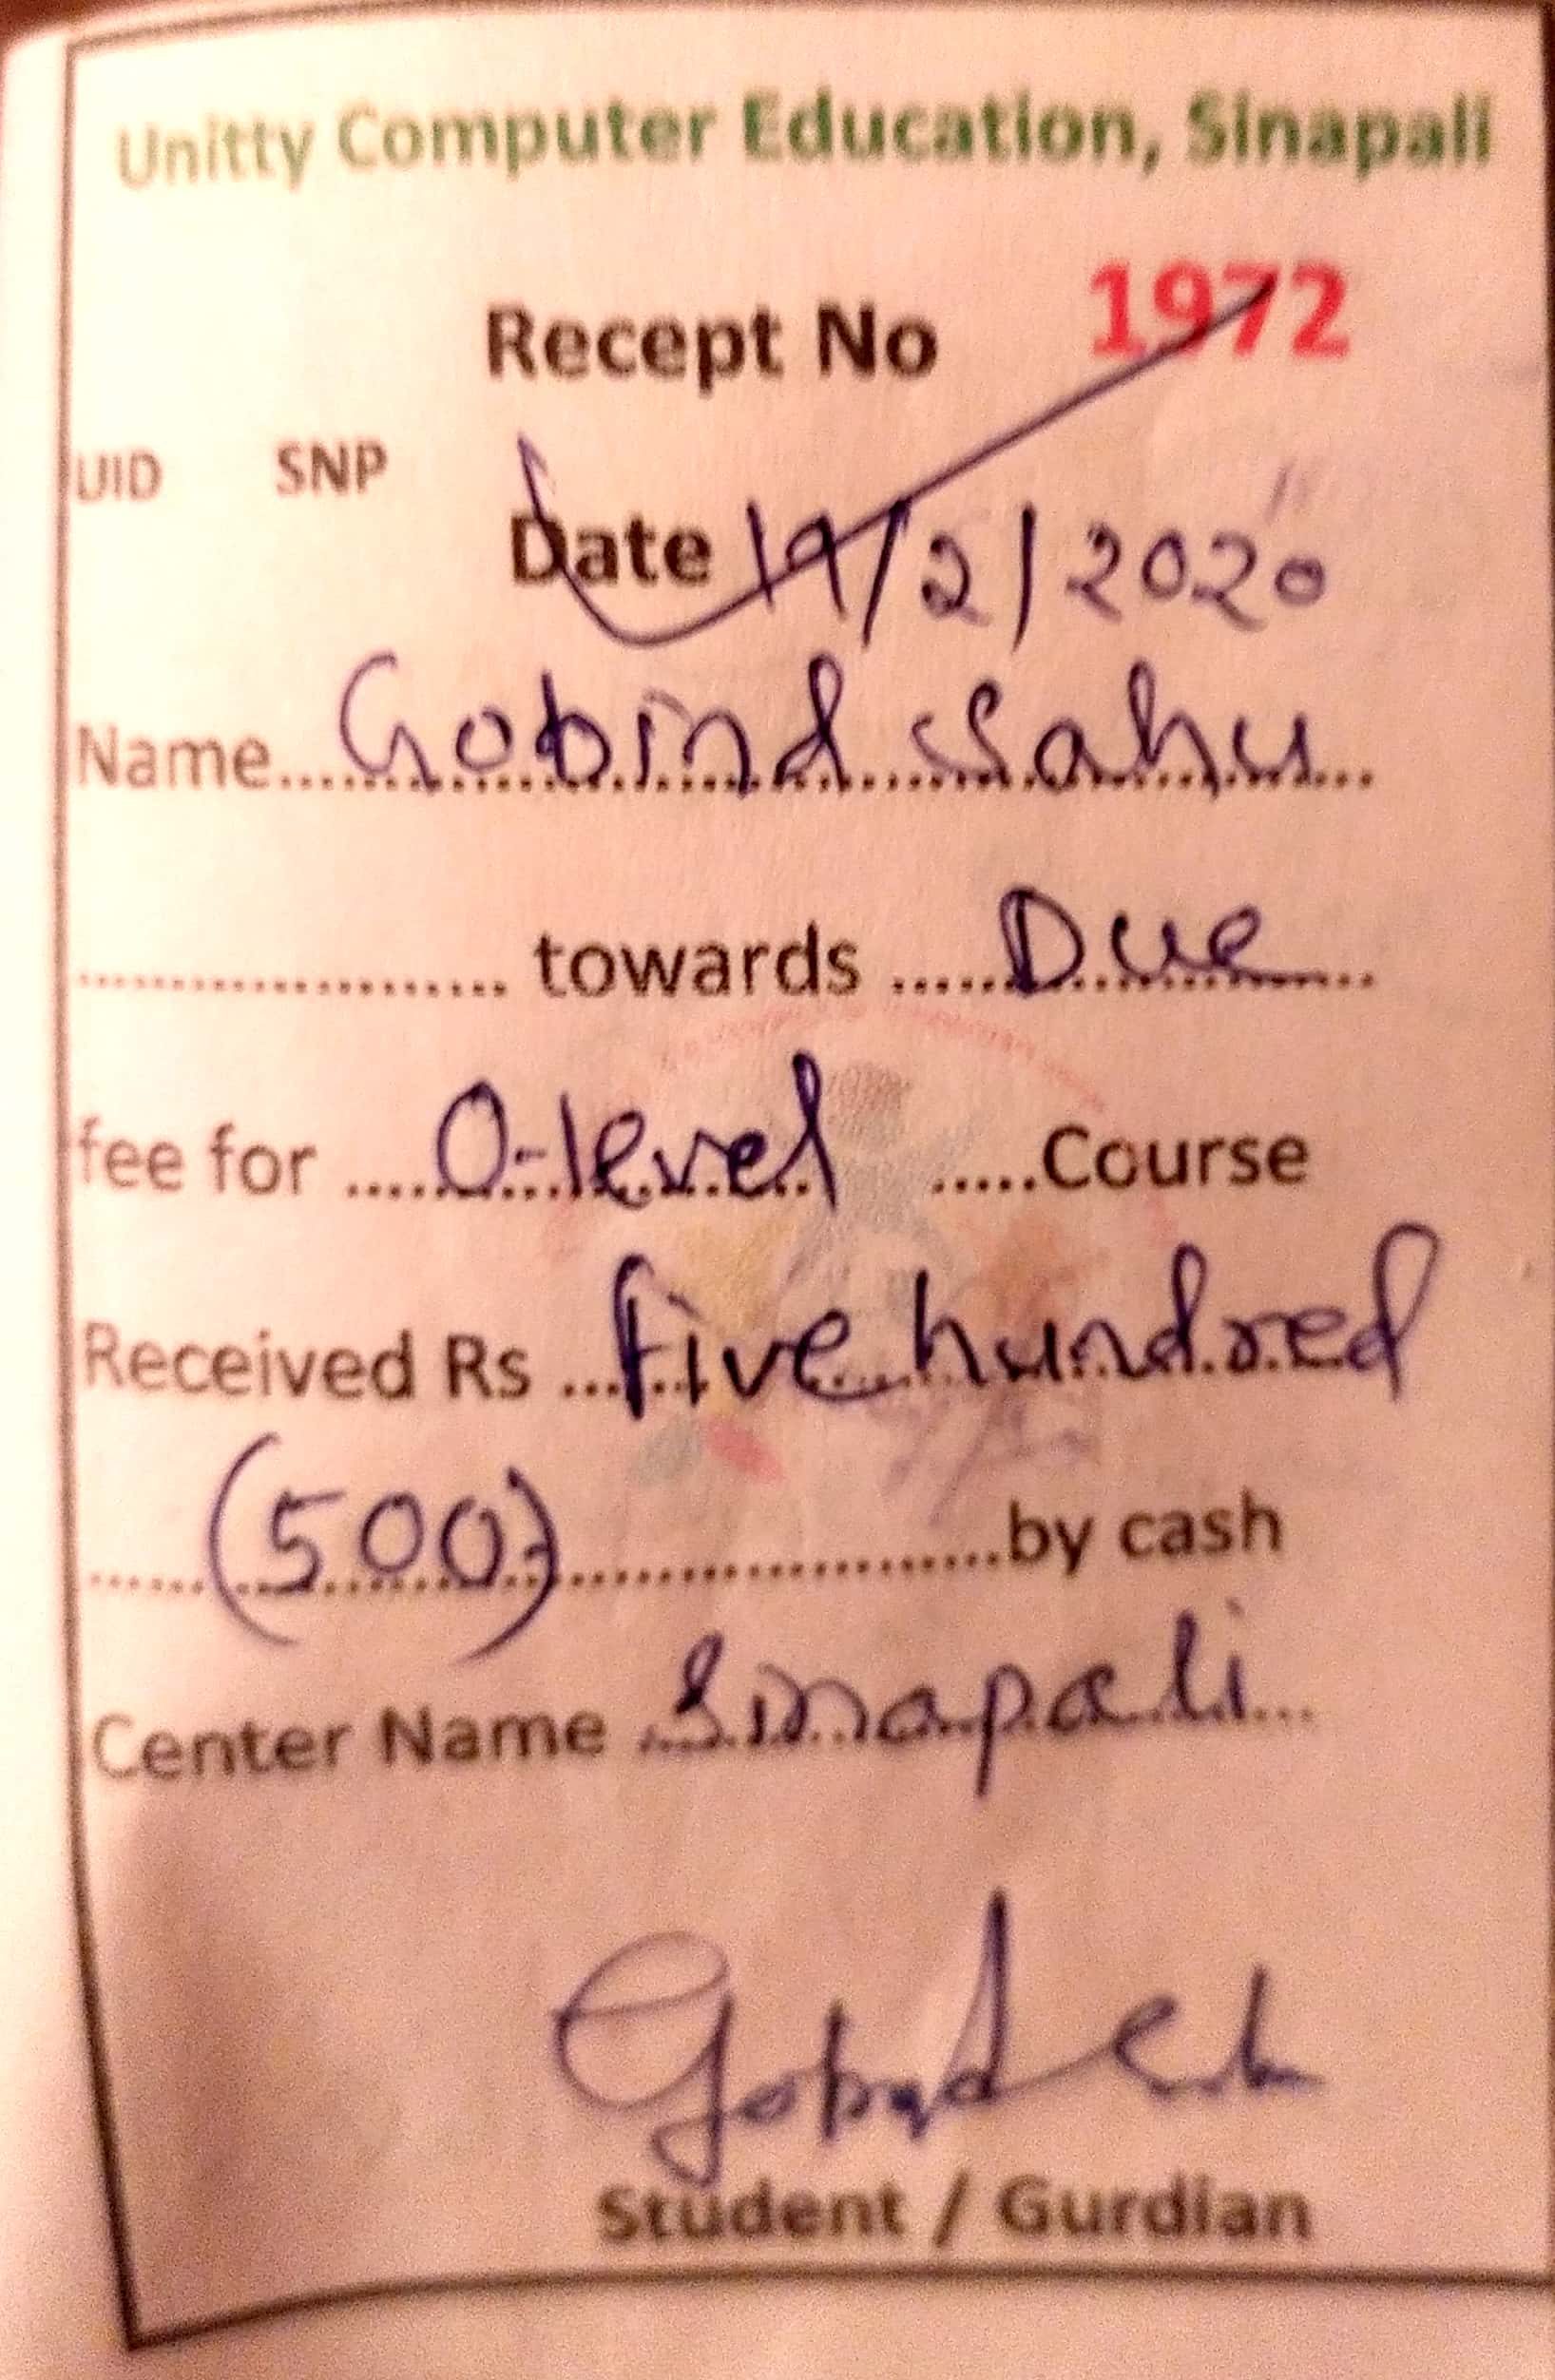 Unitty Computer Education, Sinapali
Recept No 1972
UID SNP
Date 19/2/2020
Name....Gobind Sahu....
.................... towards .....Due....
fee for ....O-level .....Course
Received Rs ....five hundred
......(500)....................by cash
Center Name ..Sinapali...
Gobind
Student / Gurdian